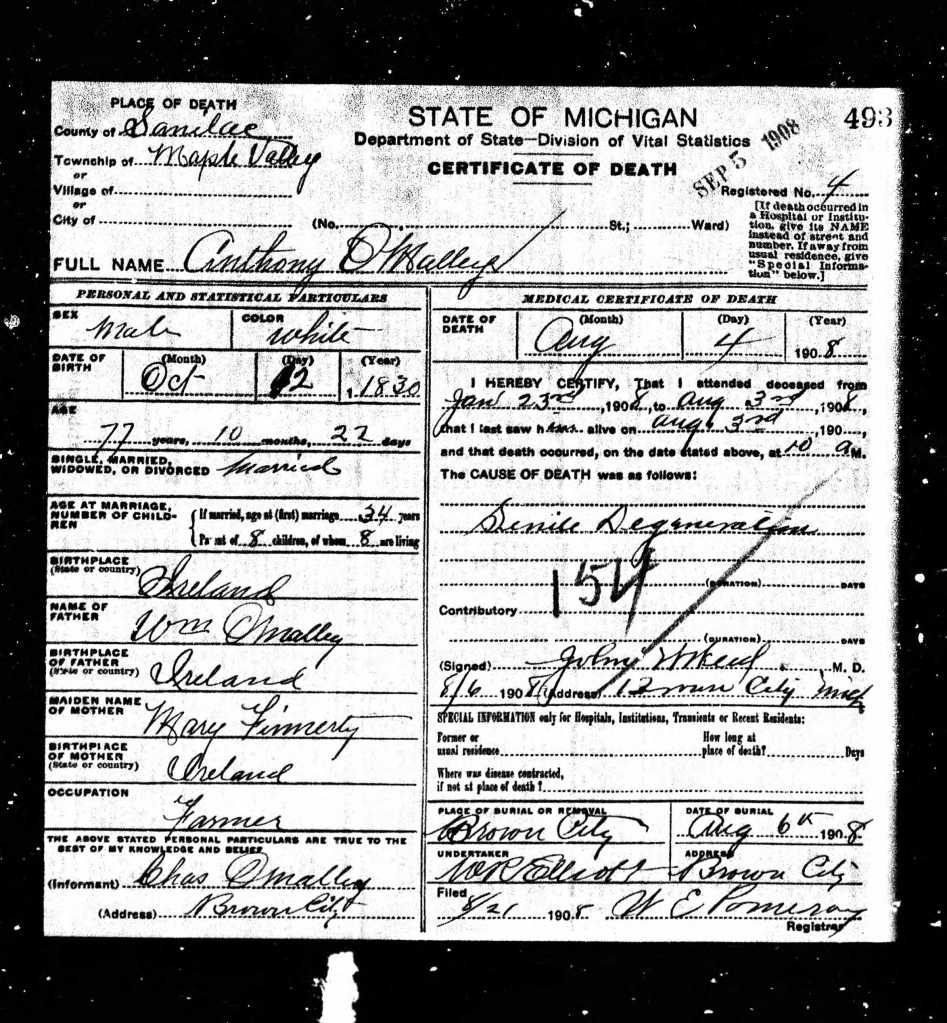 PLACE OF DEATH
County of Sanilac
Township of Maple Valley
or
Village of
or
City of
STATE OF MICHIGAN
Department of State—Division of Vital Statistics
CERTIFICATE OF DEATH
493
SEP 5 1908
Registered No. 4
[If death occurred in
a Hospital or Institu-
tion, give its NAME
instead of street and
number. If away from
usual residence, give
"Special Informa-
tion" below.]
(No. St.; Ward)
FULL NAME Anthony O'Malley
PERSONAL AND STATISTICAL PARTICULARS
SEX Male
COLOR White
DATE OF BIRTH (Month) (Day) (Year)
Oct 12 1830
AGE
77 years, 10 months, 22 days
SINGLE, MARRIED,
WIDOWED, OR DIVORCED Married
AGE AT MARRIAGE,
NUMBER OF CHILD-
REN
If married, age at (first) marriage 34 years
Parent of 8 children, of whom 8 are living
BIRTHPLACE
(State or country) Ireland
NAME OF
FATHER Wm OMalley
BIRTHPLACE
OF FATHER
(State or country) Ireland
MAIDEN NAME
OF MOTHER Mary Finnerty
BIRTHPLACE
OF MOTHER
(State or country) Ireland
OCCUPATION
Farmer
THE ABOVE STATED PERSONAL PARTICULARS ARE TRUE TO THE
BEST OF MY KNOWLEDGE AND BELIEF
(Informant) Chas OMalley
(Address) Brown City
MEDICAL CERTIFICATE OF DEATH
DATE OF DEATH (Month) (Day) (Year)
Aug 4 1908
I HEREBY CERTIFY, That I attended deceased from
Jan 23rd, 1908, to Aug 3rd, 1908,
that I last saw him alive on Aug 3rd, 190
and that death occurred, on the date stated above, at 10 a M.
The CAUSE OF DEATH was as follows:
Senile Degeneration
154
(DURATION) DAYS
Contributory
(DURATION) DAYS
(Signed) M. D.
8/6 1908 (Address) Brown City Mich
SPECIAL INFORMATION only for Hospitals, Institutions, Transients or Recent Residents:
Former or
usual residence
How long at
place of death? Days
Where was disease contracted,
if not at place of death?
PLACE OF BURIAL OR REMOVAL
Brown City
DATE OF BURIAL
Aug 6th 1908
UNDERTAKER
Elliott
ADDRESS
Brown City
Filed
8/21 1908 W E Pomeroy
Registrar